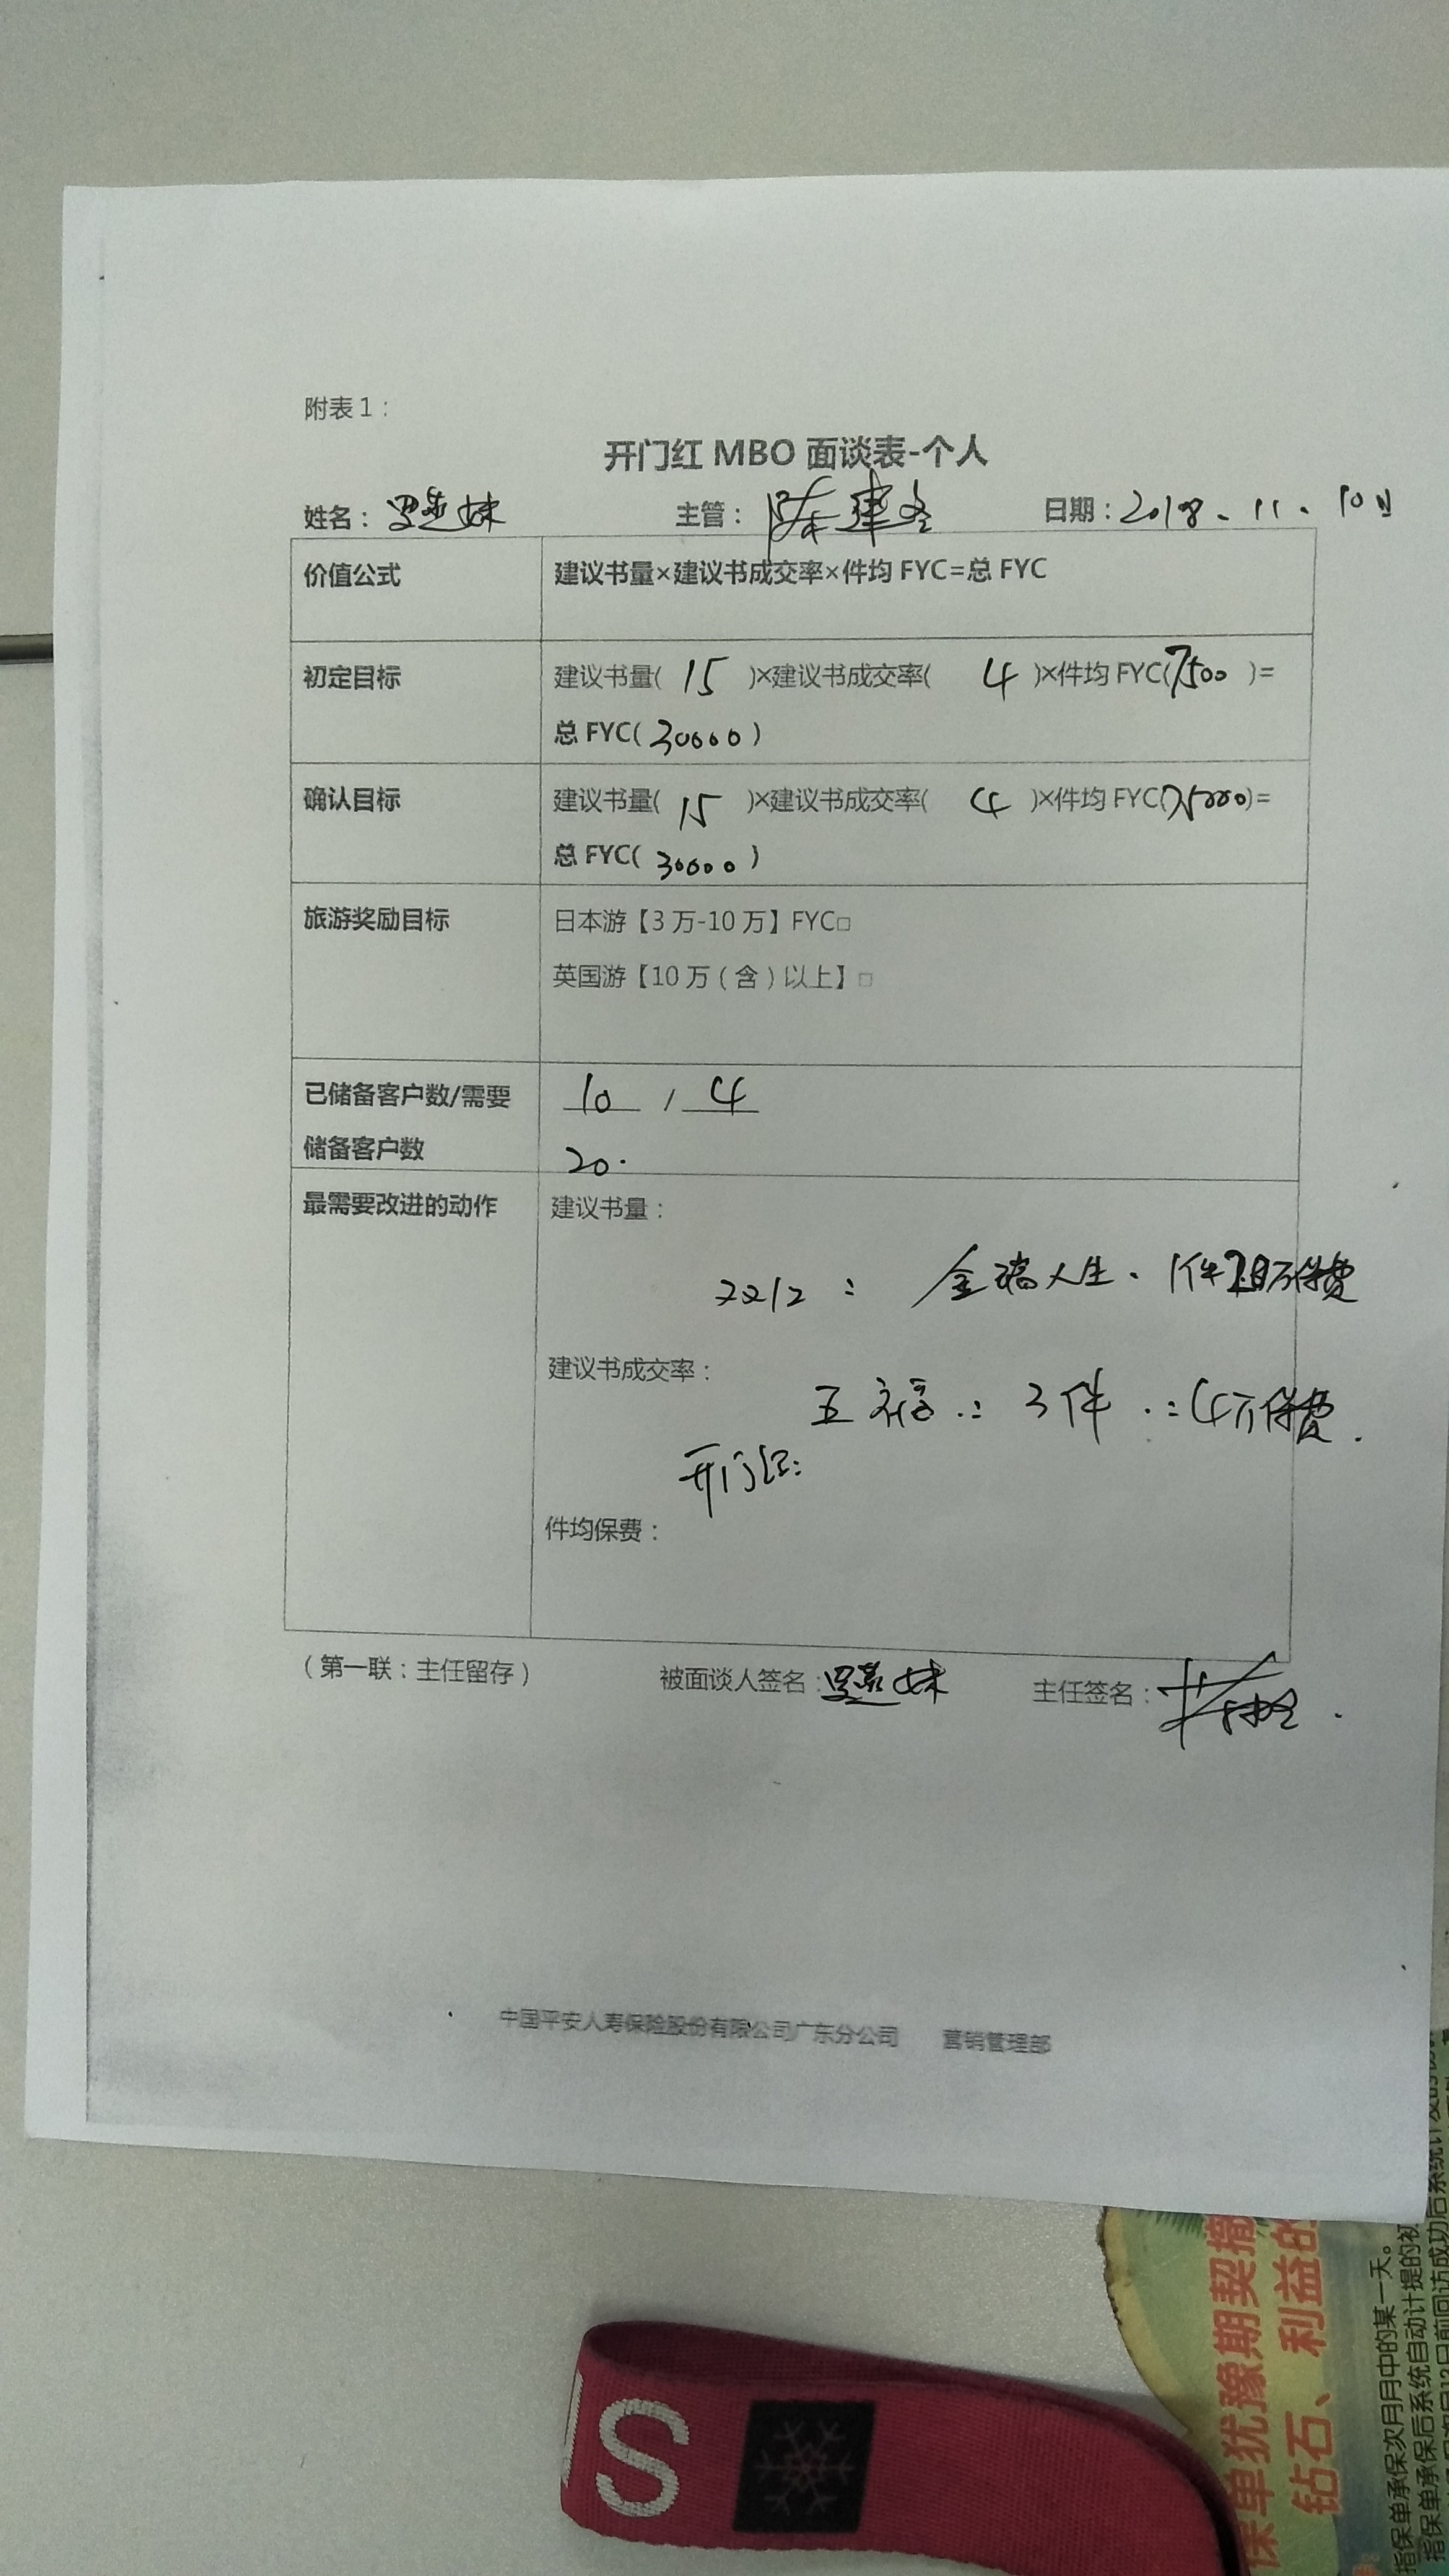 附表1：
开门红 MBO 面谈表-个人
姓名： 妹 主管：陈建 日期：2018.11.10日
价值公式 建议书量×建议书成交率×件均 FYC=总 FYC
初定目标 建议书量( 15 )×建议书成交率( 4 )×件均 FYC(7500 )=
总 FYC( 30000 )
确认目标 建议书量( 15 )×建议书成交率( 4 )×件均 FYC(75000)=
总 FYC( 30000 )
旅游奖励目标 日本游【3 万-10 万】FYC□
英国游【10 万（含）以上】□
已储备客户数/需要 10 / 4
储备客户数 20.
最需要改进的动作 建议书量：
2212： 金瑞人生. 1件 万保费
建议书成交率：
五福: 3件 .:4万保费.
开门红:
件均保费：
（第一联：主任留存） 被面谈人签名： 妹 主任签名：
中国平安人寿保险股份有限公司广东分公司 营销管理部
S
保单犹豫期契撤
钻石、利益的
指保单承保次月月中的某一天。
指保单承保后系统自动计提的初